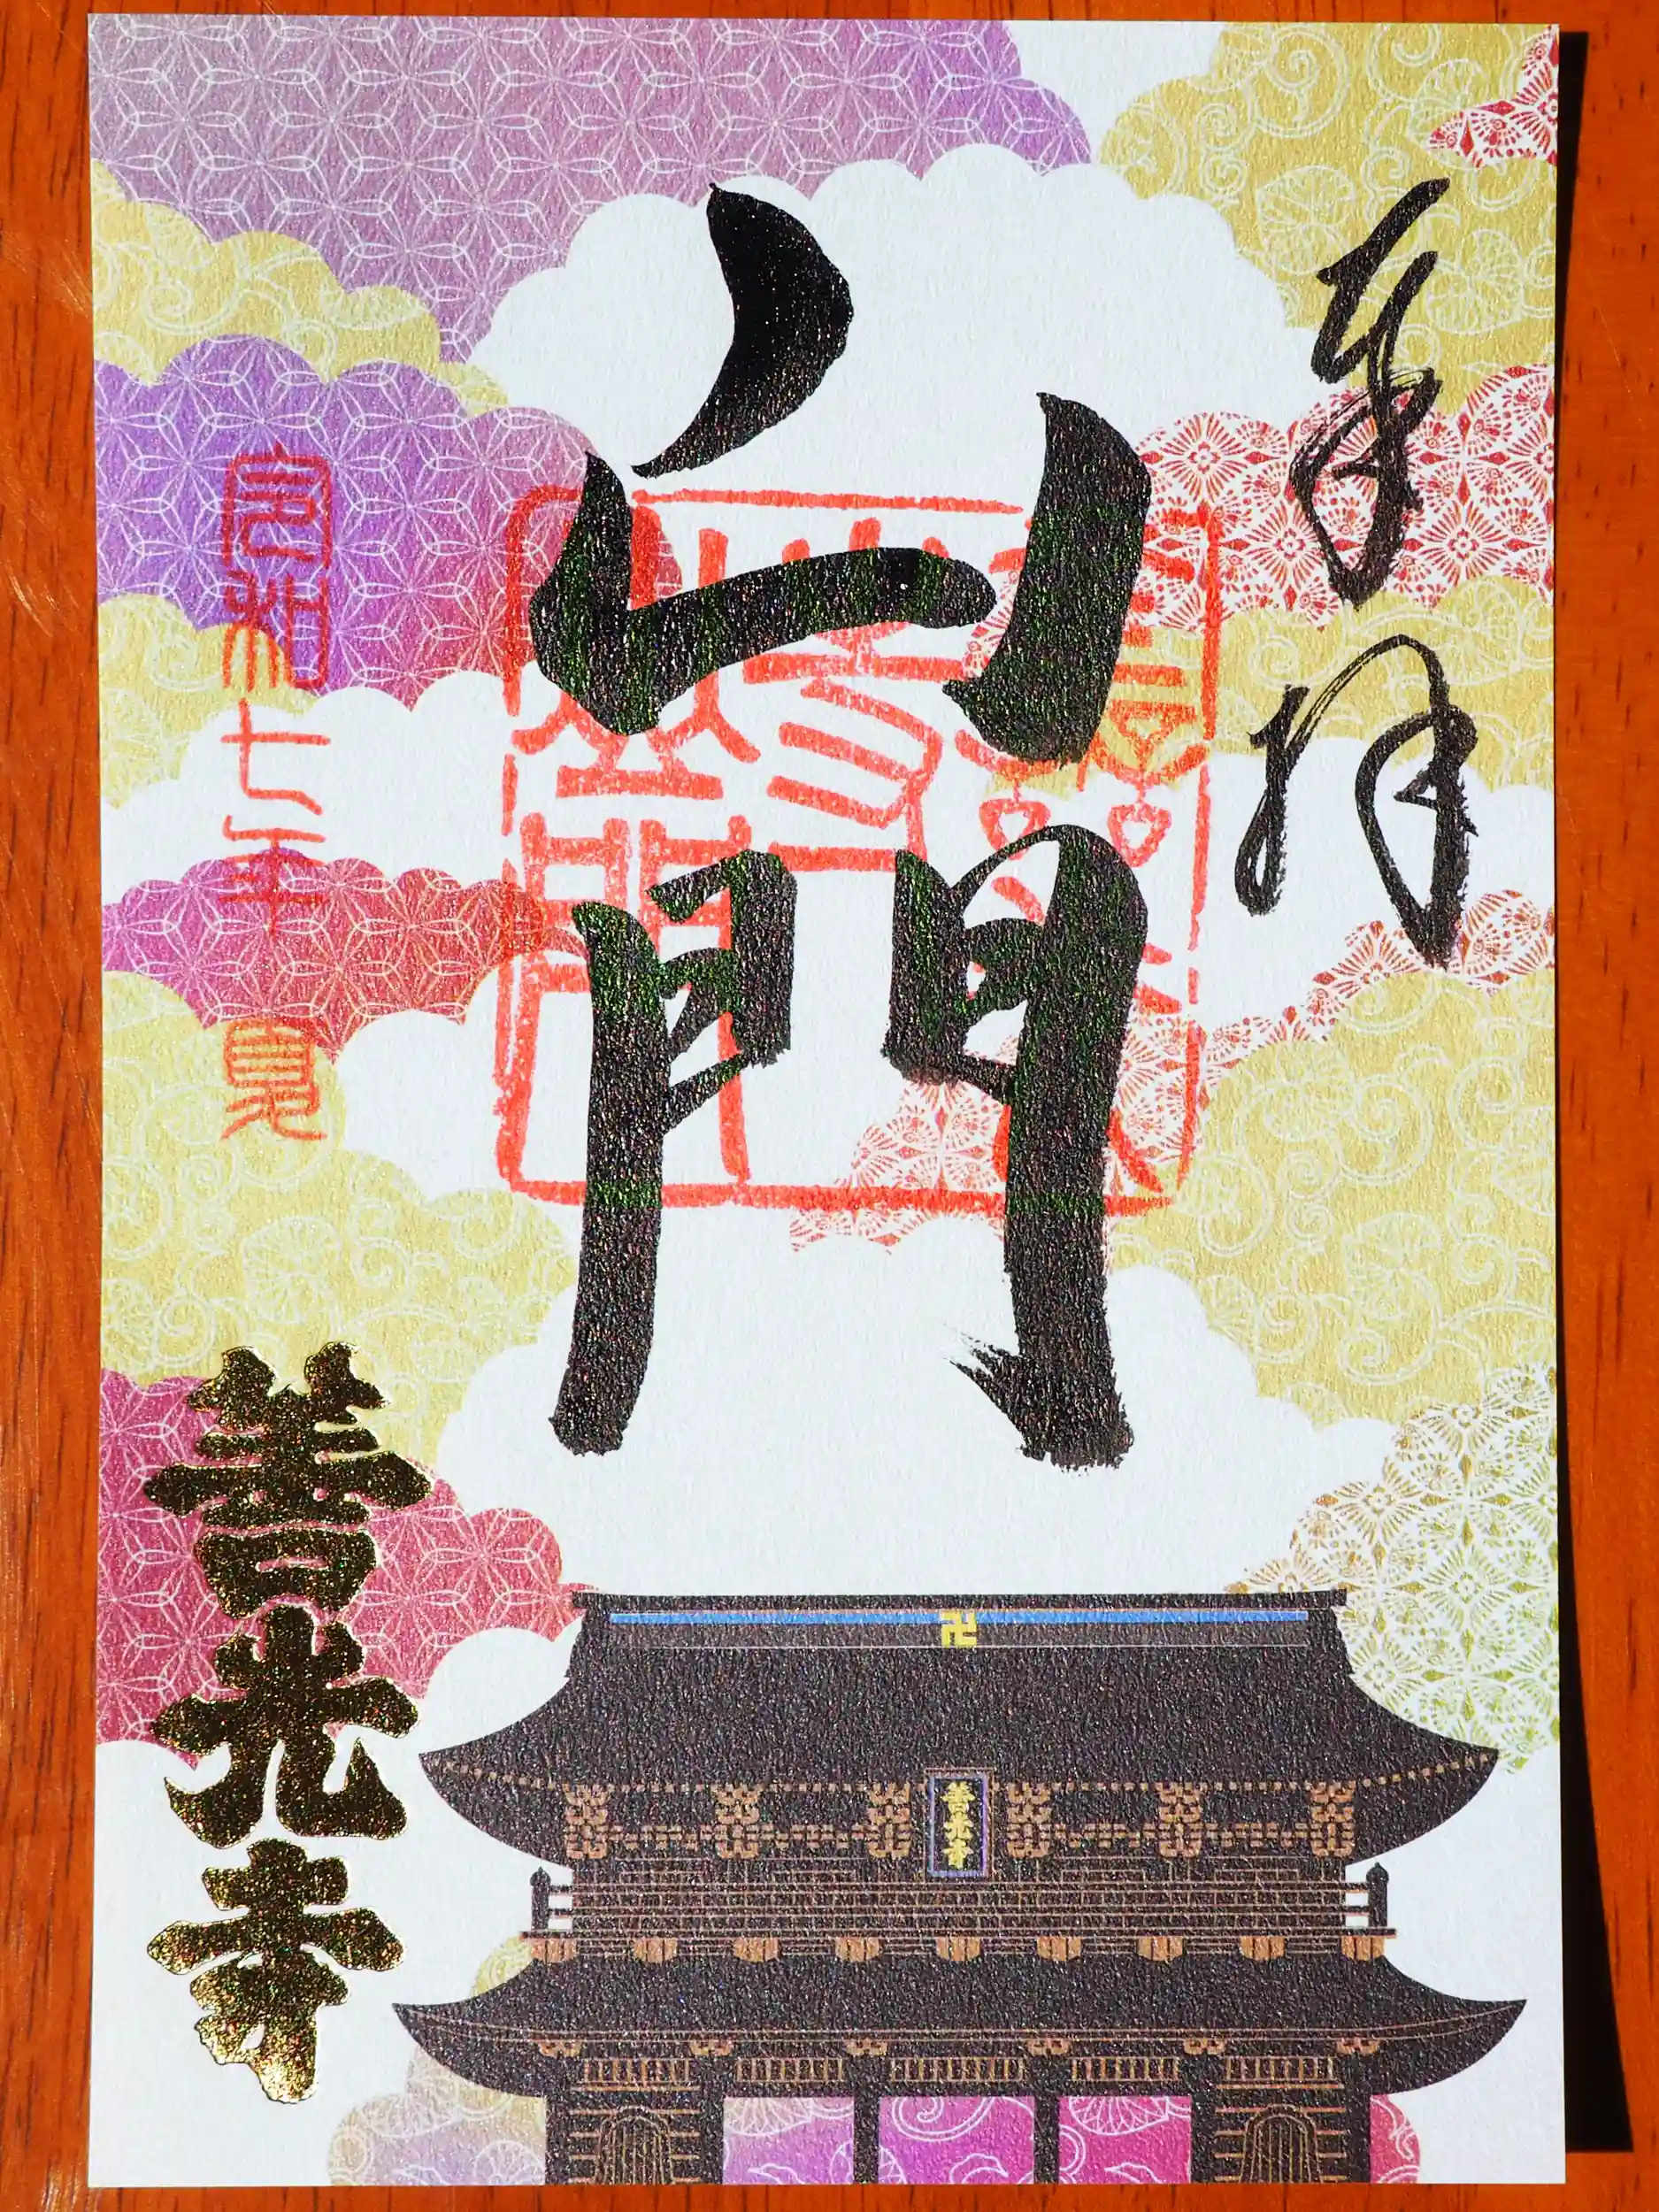 奉拝
山門
令和七年夏
善光寺
善光寺